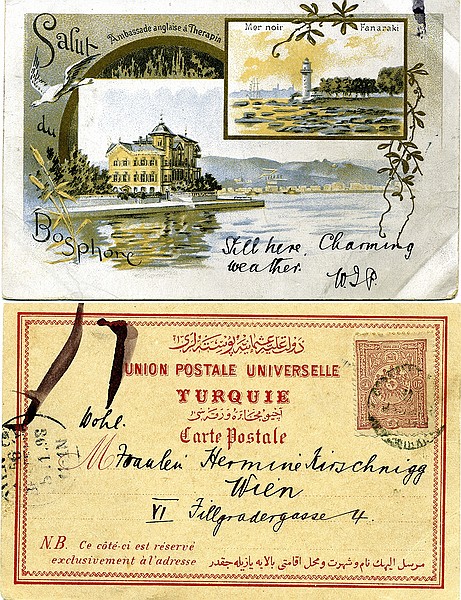 Salut
du
Bosphore
Ambassade anglaise à Therapia
Mer noir Fanaraki
Still here. Charming
weather.
UNION POSTALE UNIVERSELLE
TURQUIE
Carte Postale
Wohl.
M Fraulein Hermine Kirschnigg
Wien
VI Fillgradergasse 4.
N.B. Ce côté-ci est réservé
exclusivement à l'adresse
مرسل اليهك نام و شهرت و محل اقامتى بالايه يازيله جقدر